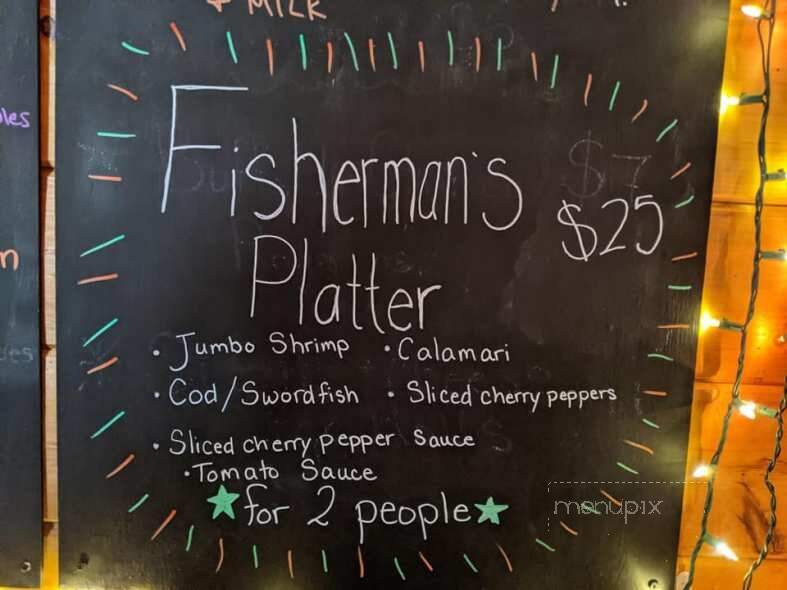 & MILK
les
Fisherman's
$7
$25
Platter
n
• Jumbo Shrimp • Calamari
• Cod/Swordfish • Sliced cherry peppers
• Sliced cherry pepper sauce
• Tomato Sauce
★for 2 people★
menupix